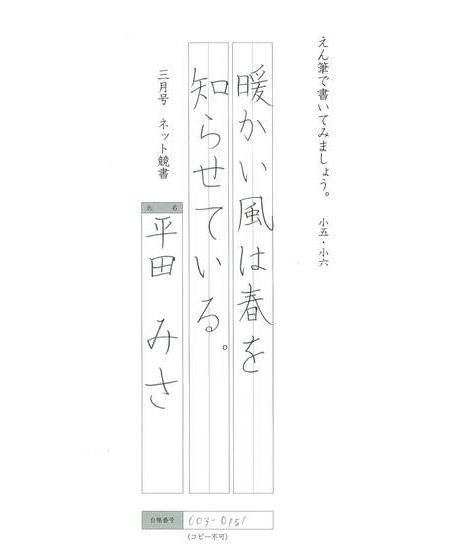 えん筆で書いてみましょう。 小五・小六
暖かい風は春を
知らせている。
三月号 ネット競書
氏名
平田 みさ
台帳番号 003-0151
(コピー不可)